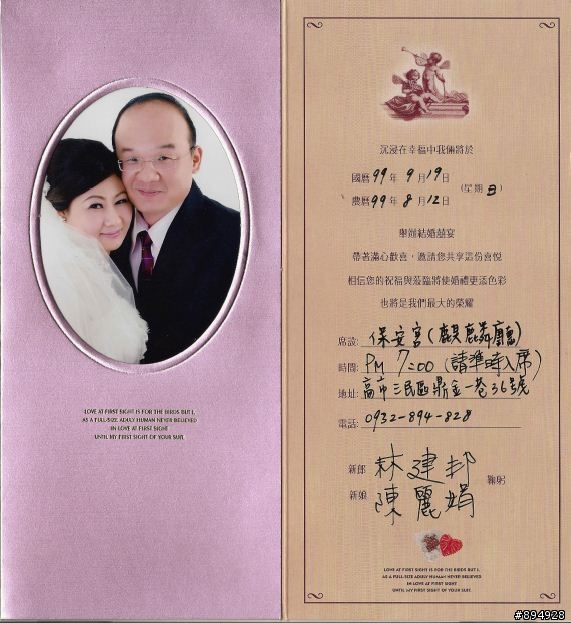 LOVE AT FIRST SIGHT IS FOR THE BIRDS BUT I,
AS A FULL-SIZE ADULY HUMAN NEVER BELIEVED
IN LOVE AT FIRST SIGHT
UNTIL MY FIRST SIGHT OF YOUR SUIT.
沉浸在幸福中我倆將於
國曆 99 年 9 月 19 日 (星期日)
農曆 99 年 8 月 12 日
舉辦結婚囍宴
帶著滿心歡喜，邀請您共享這份喜悅
相信您的祝福與蒞臨將使婚禮更添色彩
也將是我們最大的榮耀
席設: 保安宮(麒麟廳)
時間: PM 7:00 (請準時入席)
地址: 高市三民區鼎金一巷36號
電話: 0932-894-828
新郎 林建邦
新娘 陳麗娟 鞠躬
LOVE AT FIRST SIGHT IS FOR THE BIRDS BUT I,
AS A FULL-SIZE ADULY HUMAN NEVER BELIEVED
IN LOVE AT FIRST SIGHT
UNTIL MY FIRST SIGHT OF YOUR SUIT.
#894928